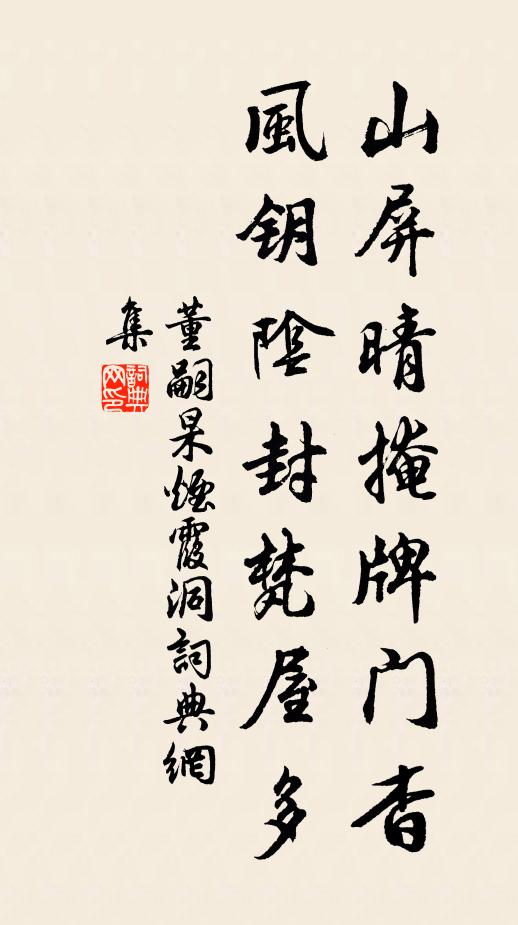 山屏晴掩牌门杳
風钥陰封梵屋多
董嗣杲煙霞洞詞典網
集
詞典
网印